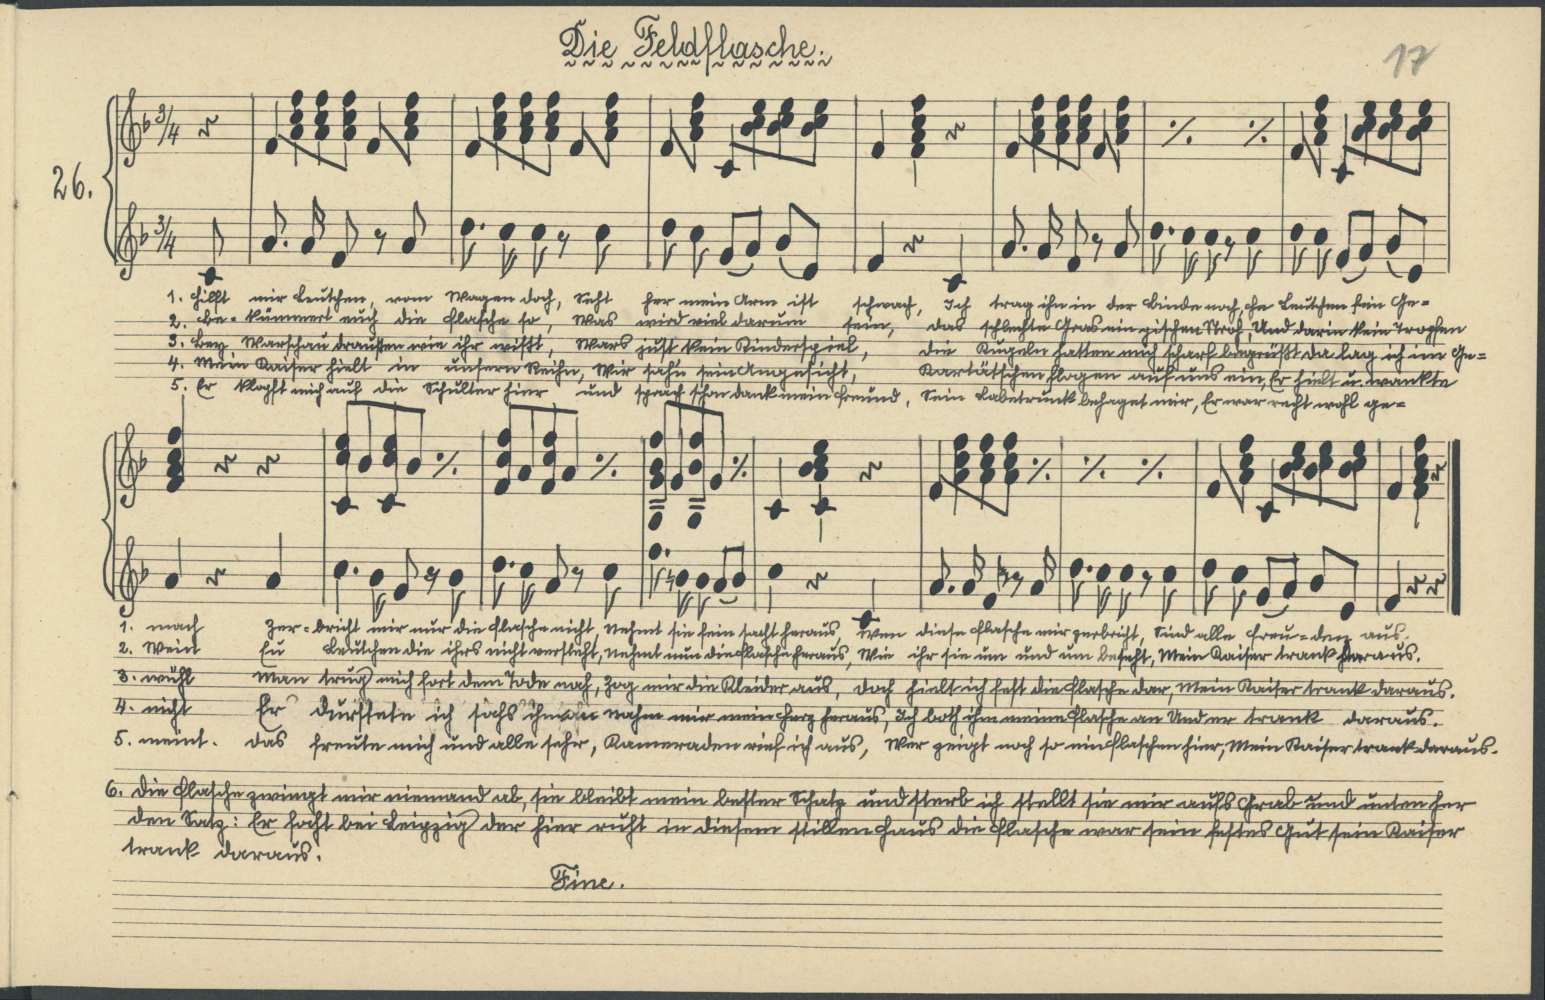 Die Feldflasche.
17
26.
1. Hilft mir Leutchen, vom Wagen doch, Seht her mein Arm ist schwach, Ich trag ihn in der Binde noch, Ihr Leutchen fein Ge=
2. Be-kümmert euch die Flasche so, Was wird viel darum sein, das schlechte Glas ein zischen Stroh, Und darin kein Tropfen
3. Bey Warschau draußen wie ihr wißt, Wars just kein Kinderspiel, Die Kugeln hatten mich scharf begrüßt da lag ich im Ge=
4. Mein Kaiser hielt in unsern Reihn, Wir sahn sein Angesicht, Kartätschen flogen auf uns ein, Er hielt u. wankte
5. Er klopft mich auf die Schulter hier und sprach schon dank mein Freund, Dein Labetrunk behaget mir, Er war recht wohl ge=
1. mach Zer=bricht mir nur die Flasche nicht, Nehmt sie fein sacht heraus, Wen diese Flasche mir zerbricht, Sind alle Freu=den aus.
2. Wein Eü Leutchen die ihrs nicht versteht, Nehmt nun die Flasche heraus, Wie ihr sie um und um beseht, Mein Kaiser trank daraus.
3. wühl Man trug mich fort dem Tode nah, Zog mir die Kleider aus, doch hielt ich fest die Flasche dar, Mein Kaiser trank daraus.
4. nicht Er durstete ich sahs ihm nahm mir mein Herz heraus, Ich both ihm meine Flasche an Und er trank daraus.
5. meint. Das freute mich und alle sehr, Kameraden rief ich aus, Wer zeigt noch so ein Flaschen hier, Mein Kaiser trank daraus.
6. Die Flasche zwingt mir niemand ab, sie bleibt mein bester Schatz und sterb ich stellt sie mir aufs Grab und unten her
den Satz: Er focht bei Leipzig der hier ruht in diesem stillen Haus die Flasche war sein festes Gut sein Kaiser
trank daraus.
Fine.